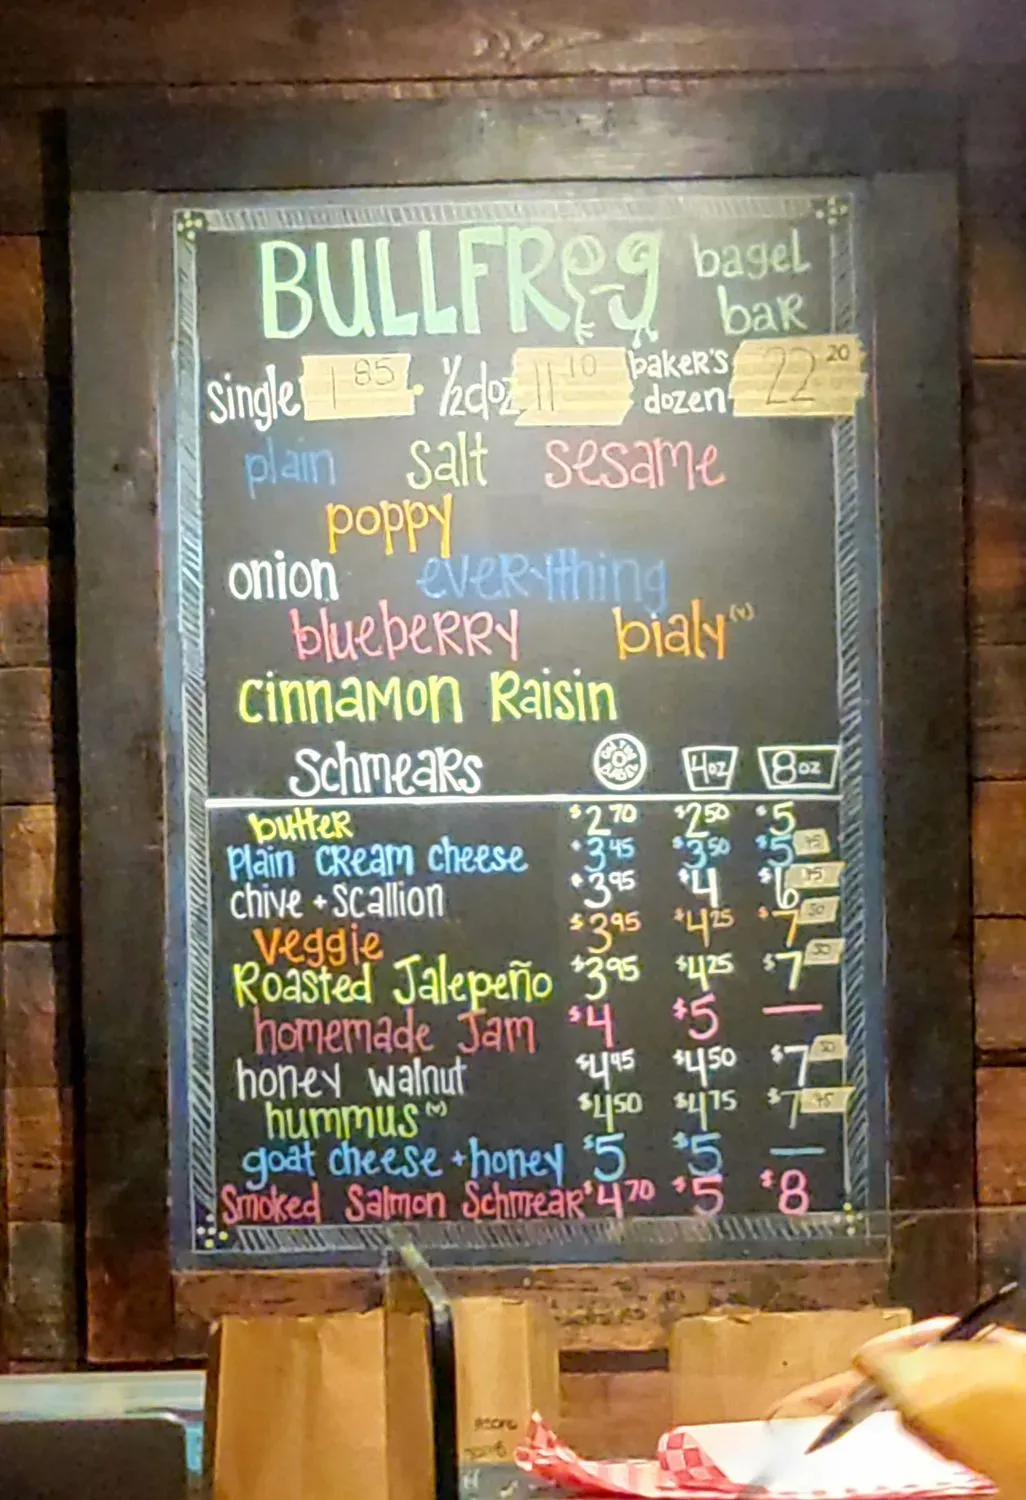 BULLFROG bagel bar
single 1 85 · ½ doz 11 10 baker's dozen 22 20
plain salt sesame
poppy
onion everything
blueberry bialy (v)
cinnamon Raisin
Schmears 4oz 8oz
butter $2 70 $2 50 $5
Plain CReam cheese $3 45 $3 50 $5 45
chive + scallion $3 95 $4 $6 45
veggie $3 95 $4 25 $7 50
Roasted Jalepeño $3 95 $4 25 $7 50
homemade Jam $4 $5 —
honey walnut $4 95 $4 50 $7 50
hummus (v) $4 50 $4 75 $7 95
goat cheese + honey $5 $5 —
Smoked Salmon Schmear $4 70 $5 $8